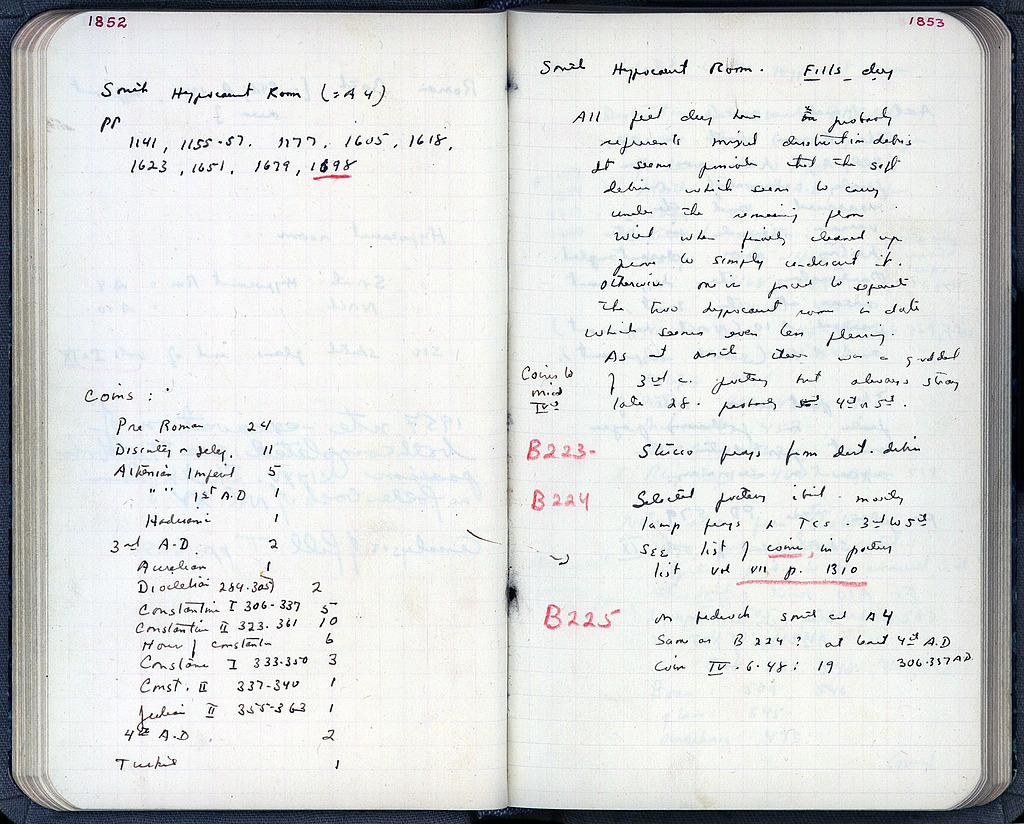 1852
South Hypocaust Room (= A 4)
pp
1141, 1155-57, 1177, 1605, 1618,
1623, 1651, 1679, 1698
Coins:
Pre Roman 24
11
Athenian Imperial 5
" " 1st A.D 1
Hadrianic 1
3rd A.D. 2
Aurelian 1
Diocletian 284-305 2
Constantine I 306-337 5
Constantius II 323-361 10
House of Constantine 6
Constans I 333-350 3
Const. II 337-340 1
Julian II 355-363 1
4th A.D 2
Turkish 1
1853
South Hypocaust Room. Fills dug
All fill dug here probably
represents mixed destruction debris
It seems possible that the soft
debris which seems to carry
under the remaining floor
will when finely cleaned up
prove to simply undercut it.
Otherwise one is forced to separate
the two hypocaust rooms in date
which seems even less pleasing.
As at north there was a good deal
of 3rd c. pottery but always stray
late 28. probably 4th or 5th.
Coins to
mid
IVth
B223- Stucco frags from dest. debris
B224 Selected pottery ibid. mostly
lamp frags & TCs. 3rd to 5th
See list of coins, in pottery
list vol VII p. 1310
B225 on bedrock south end A4
Same as B224? at least 4th A.D
Coin IV-6-48: 19 306-337 A.D.